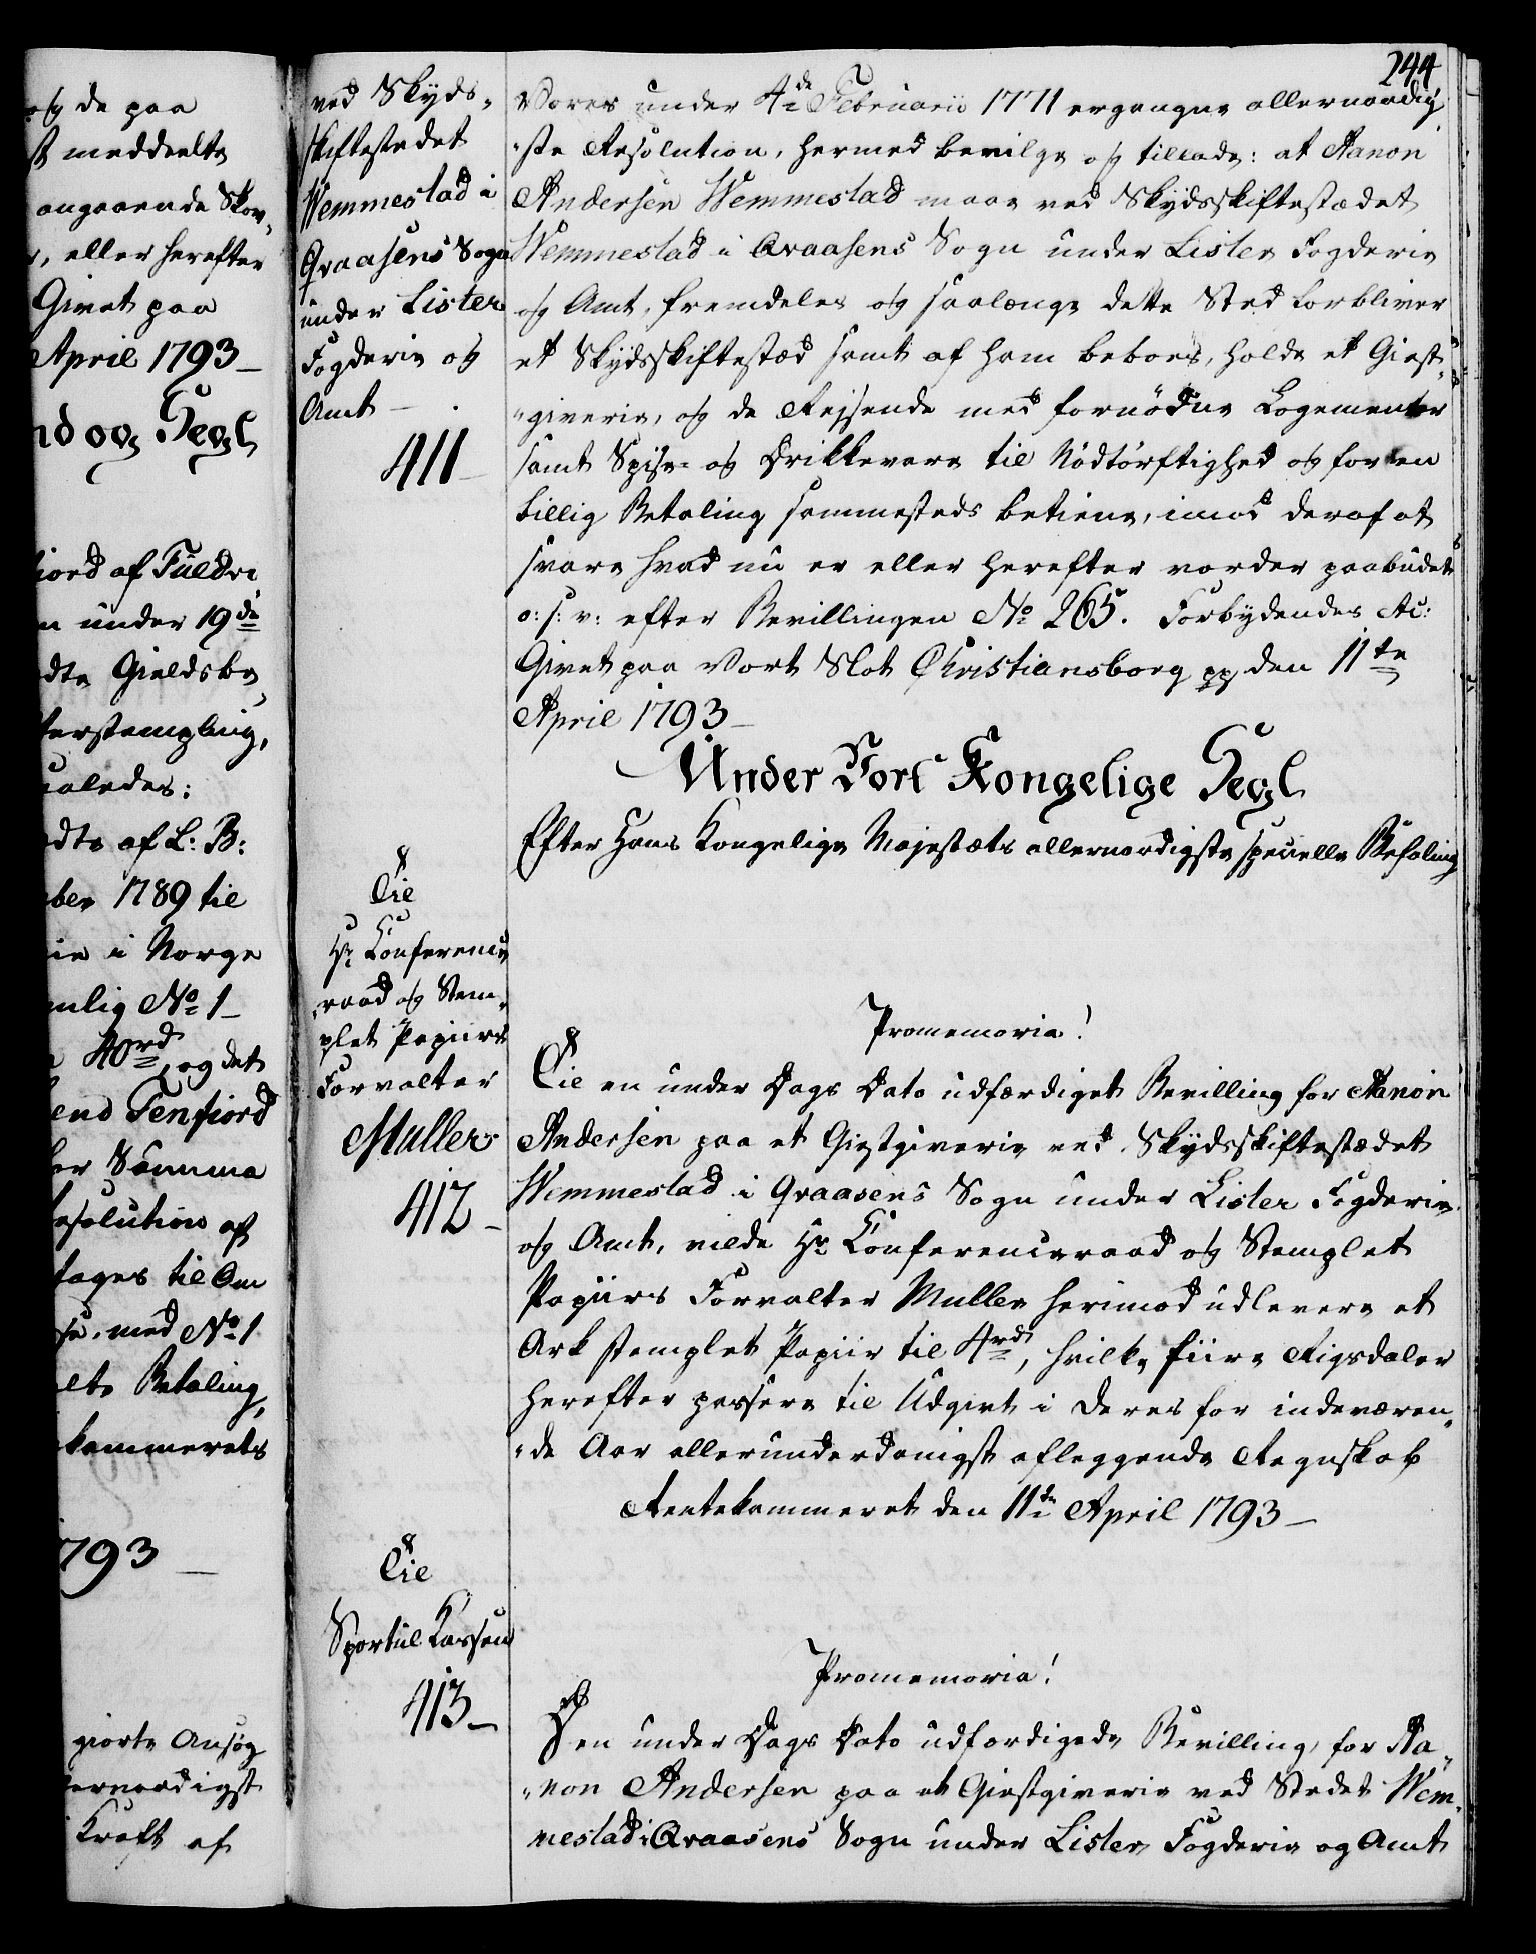 og de paa
st meddeelte
angaaende Skov-
r, eller herefter
Givet paa
April 1793 —
nd og Segl
fiord af Fuldri
n under 19de
dte Gieldsbe-
terstempling,
saaledes:
edte af L: B:
ber 1789 til
ie i Norge
nlig No 1 —
40rd, og det
end Tenfiord
her Summa
Resolution af
tages til Om
se, med No 1
elte Betaling,
kammerets
1793 —
giorte Ansøg
ernaadigst
Kraft af
ved Skyds-
skiftestedet
Wemmestad i
Qvaasens Sogn
under Lister
Fogderie og
Amt —
411 —
Til
Hr Conference
raad og Stem-
plet Papiirs
Forvalter
Muller.
412 —
Til
Sportul Kassen
413 —
244
Vores under 4de Februarii 1771 ergangne allernaadig-
"ste Resolution, hermed bevilge og tillade: at Aanon
Andersen Wemmestad maae ved Skydsskiftestædet
Wemmestad i Qvaasens Sogn under Lister Fogderie
og Amt, fremdeles og saalænge dette Sted forbliver
et Skydsskiftestæd samt af ham beboes, holde et Giest-
"giverie, og de Reisende med fornødne Logementer
samt Spise- og Drikkevare til Nødtørftighed og for en
billig Betaling sammesteds betiene, imod deraf at
svare hvad nu er eller herefter vorder paabudet
o: s: v: efter Bevillingen No 265. Forbydendes &c:
Givet paa Vort Slot Christiansborg pp den 11te
April 1793 —
Under Vort Kongelige Segl
Efter Hans Kongelige Majestæts allernaadigste specielle Befaling
Promemoria!
Til en under Dags Dato udfærdiget Bevilling for Aanon
Andersen paa et Giestgiverie ved Skydsskiftestædet
Wemmestad i Qvaasens Sogn under Lister Fogderie
og Amt, vilde Hr Conferenceraad og Stemplet
Papiirs Forvalter Muller herimod udlevere et
Ark stemplet Papiir til 4rd, hvilke fiire Rigsdaler
herefter passere til Udgivt i Deres for indeværen-
"de Aar allerunderdanigst aflæggende Regnskab
Rentekammeret den 11te April 1793 —
Promemoria!
Den under Dags Dato udfærdigede Bevilling, for Aa-
"non Andersen paa et Giestgiverie ved Stedet Wem-
mestad i Qvaasens Sogn under Lister Fogderie og Amt